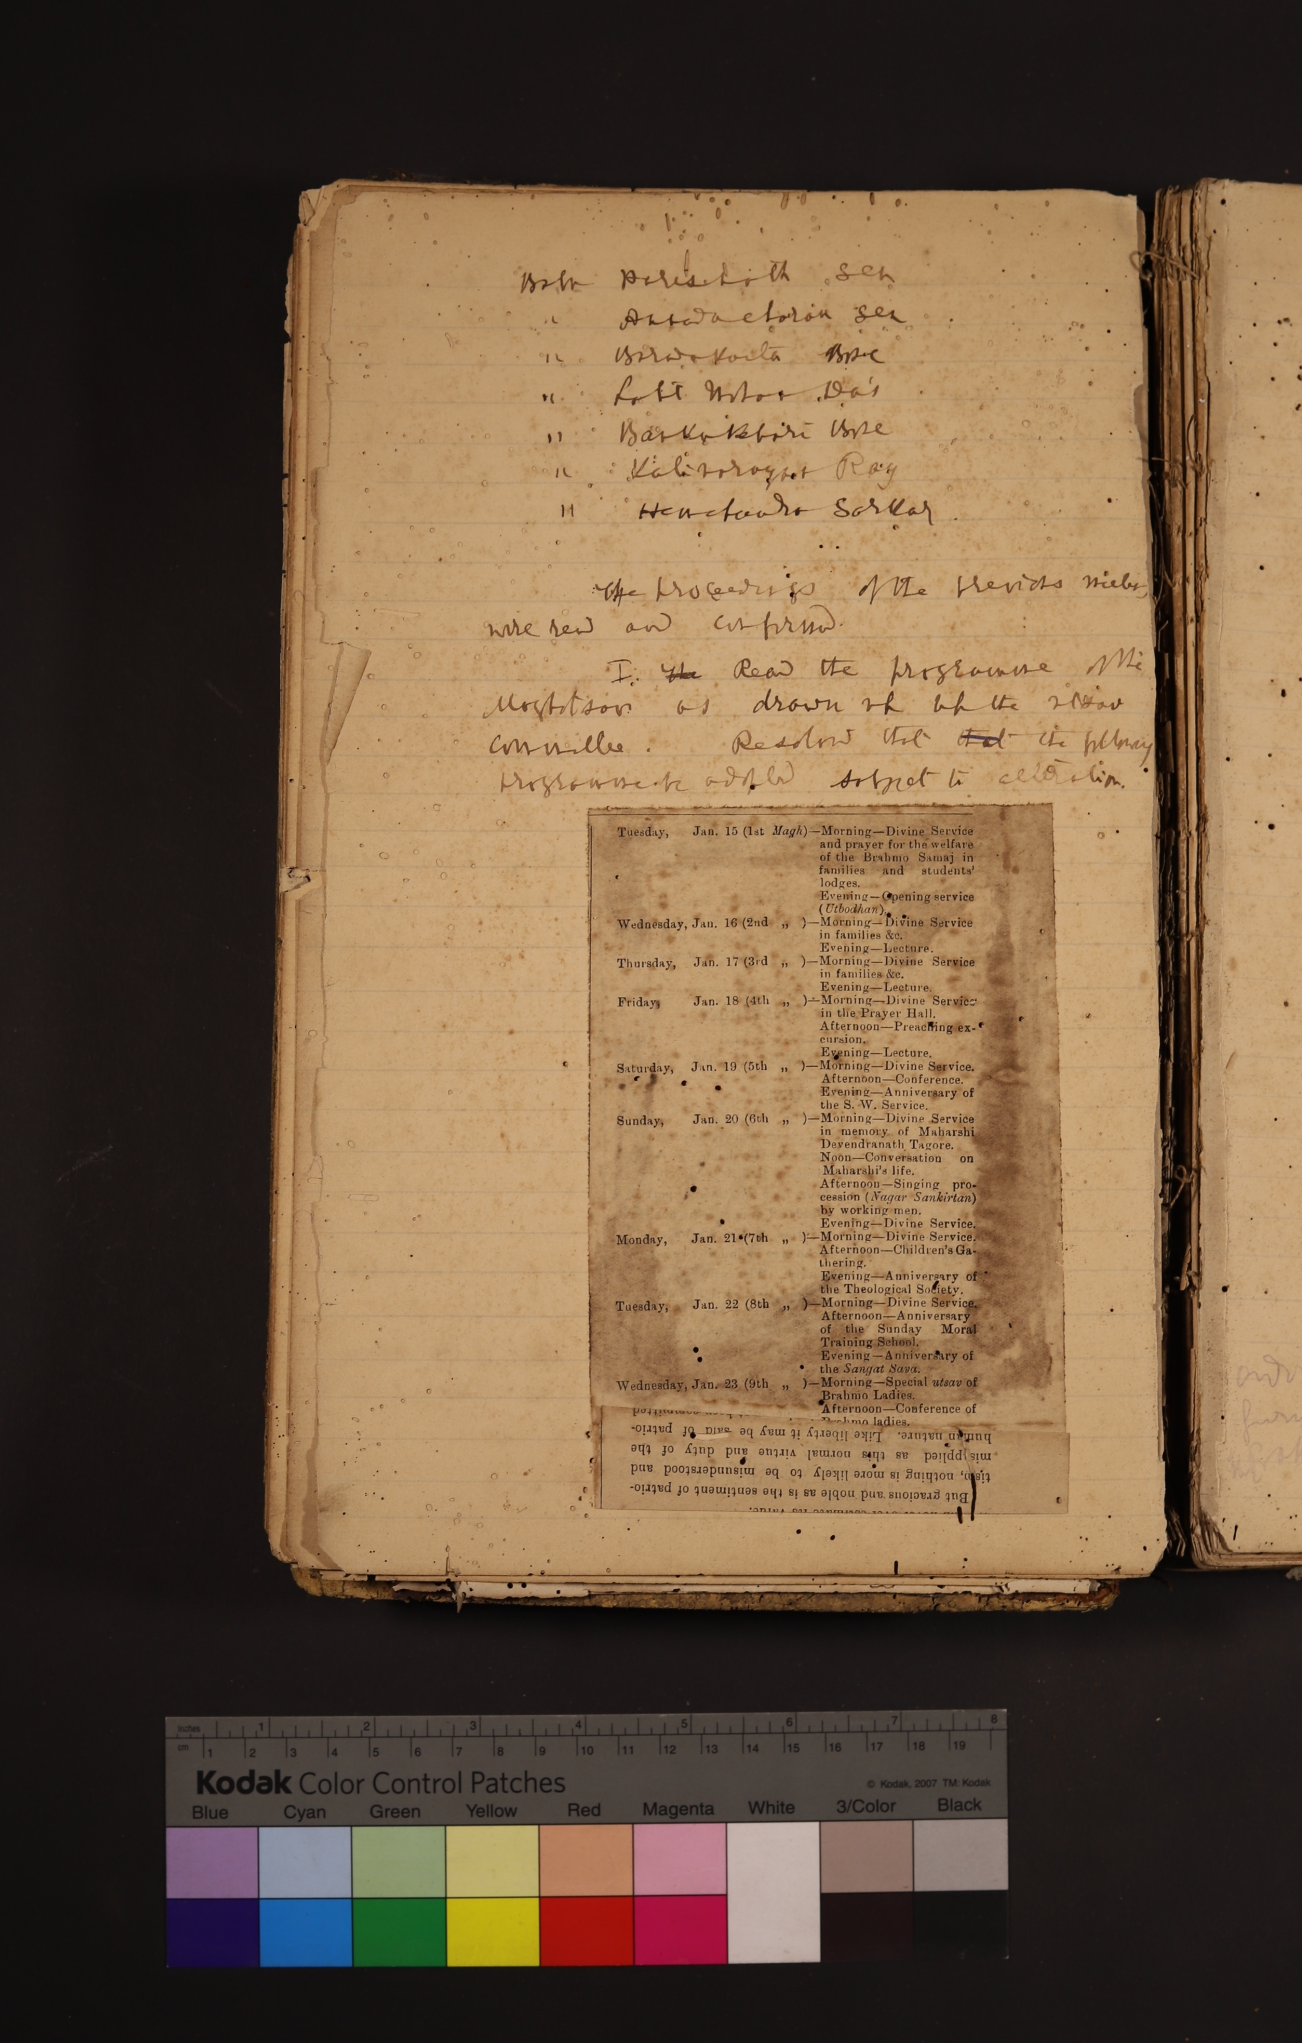 Babu Pareshnath Sen
" Annadacharan Sen
" Baradakanta Bose
" Lalit Mohan Das
" Bankubihari Bose
" Kalinarayan Ray
" Hemchandra Sarkar
The proceedings of the previous
were read and confirmed.
I. the Read the programme of the
Maghotsav as drawn up by the utsav
Committee. Resolved that that the following
programme be adopted subject to alteration.
Tuesday, Jan. 15 (1st Magh)—Morning—Divine Service
and prayer for the welfare
of the Brahmo Samaj in
families and students'
lodges.
Evening—Opening service
(Utbodhan).
Wednesday, Jan. 16 (2nd „ )—Morning—Divine Service
in families &c.
Evening—Lecture.
Thursday, Jan. 17 (3rd „ )—Morning—Divine Service
in families &c.
Evening—Lecture.
Friday, Jan. 18 (4th „ )—Morning—Divine Service
in the Prayer Hall.
Afternoon—Preaching ex-
cursion.
Evening—Lecture.
Saturday, Jan. 19 (5th „ )—Morning—Divine Service.
Afternoon—Conference.
Evening—Anniversary of
the S. W. Service.
Sunday, Jan. 20 (6th „ )—Morning—Divine Service
in memory of Maharshi
Devendranath Tagore.
Noon—Conversation on
Maharshi's life.
Afternoon—Singing pro-
cession (Nagar Sankirtan)
by working men.
Evening—Divine Service.
Monday, Jan. 21 (7th „ )—Morning—Divine Service.
Afternoon—Children's Ga-
thering.
Evening—Anniversary of
the Theological Society.
Tuesday, Jan. 22 (8th „ )—Morning—Divine Service.
Afternoon—Anniversary
of the Sunday Moral
Training School.
Evening—Anniversary of
the Sangat Sava.
Wednesday, Jan. 23 (9th „ )—Morning—Special utsav of
Brahmo Ladies.
Afternoon—Conference of
Brahmo ladies.
But gracious and noble as is the sentiment of patrio-
tism, nothing is more likely to be misunderstood and
misapplied as this normal virtue and duty of the
human nature. Like liberty it may be said of patrio-
inches 1 2 3 4 5 6 7 8
cm 1 2 3 4 5 6 7 8 9 10 11 12 13 14 15 16 17 18 19
Kodak Color Control Patches © Kodak, 2007 TM: Kodak
Blue Cyan Green Yellow Red Magenta White 3/Color Black